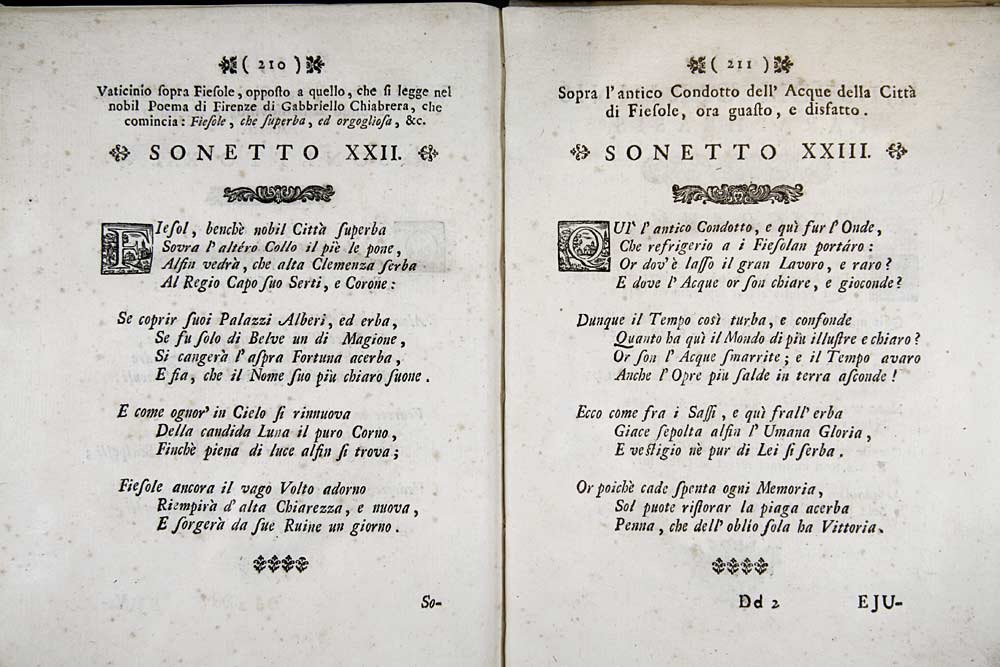 ( 210 )
Vaticinio ſopra Fieſole, oppoſto a quello, che ſi legge nel
nobil Poema di Firenze di Gabbriello Chiabrera, che
comincia: Fieſole, che ſuperba, ed orgoglioſa, &c.
SONETTO XXII.
FIeſol, benchè nobil Città ſuperba
Sovra l'altéro Collo il piè le pone,
Alfin vedrà, che alta Clemenza ſerba
Al Regio Capo ſuo Serti, e Corone:
Se coprir ſuoi Palazzi Alberi, ed erba,
Se fu ſolo di Belve un di Magione,
Si cangerà l'aſpra Fortuna acerba,
E fia, che il Nome ſuo più chiaro ſuone.
E come ognor' in Cielo ſi rinnuova
Della candida Luna il puro Corno,
Finchè piena di luce alfin ſi trova;
Fieſole ancora il vago Volto adorno
Riempirà d'alta Chiarezza, e nuova,
E ſorgerà da ſue Ruine un giorno.
So-
( 211 )
Sopra l'antico Condotto dell' Acque della Città
di Fieſole, ora guaſto, e disfatto.
SONETTO XXIII.
QUI' l'antico Condotto, e quì fur l'Onde,
Che refrigerio a i Fieſolan portáro:
Or dov'è laſſo il gran Lavoro, e raro?
E dove l'Acque or ſon chiare, e gioconde?
Dunque il Tempo così turba, e confonde
Quanto ha quì il Mondo di più illuſtre e chiaro?
Or ſon l'Acque ſmarrite; e il Tempo avaro
Anche l'Opre più ſalde in terra aſconde!
Ecco come fra i Saſſi, e quì frall' erba
Giace ſepolta alfin l'Umana Gloria,
E veſtigio nè pur di Lei ſi ſerba.
Or poichè cade ſpenta ogni Memoria,
Sol puote riſtorar la piaga acerba
Penna, che dell' oblio ſola ha Vittoria.
Dd 2 EJU-